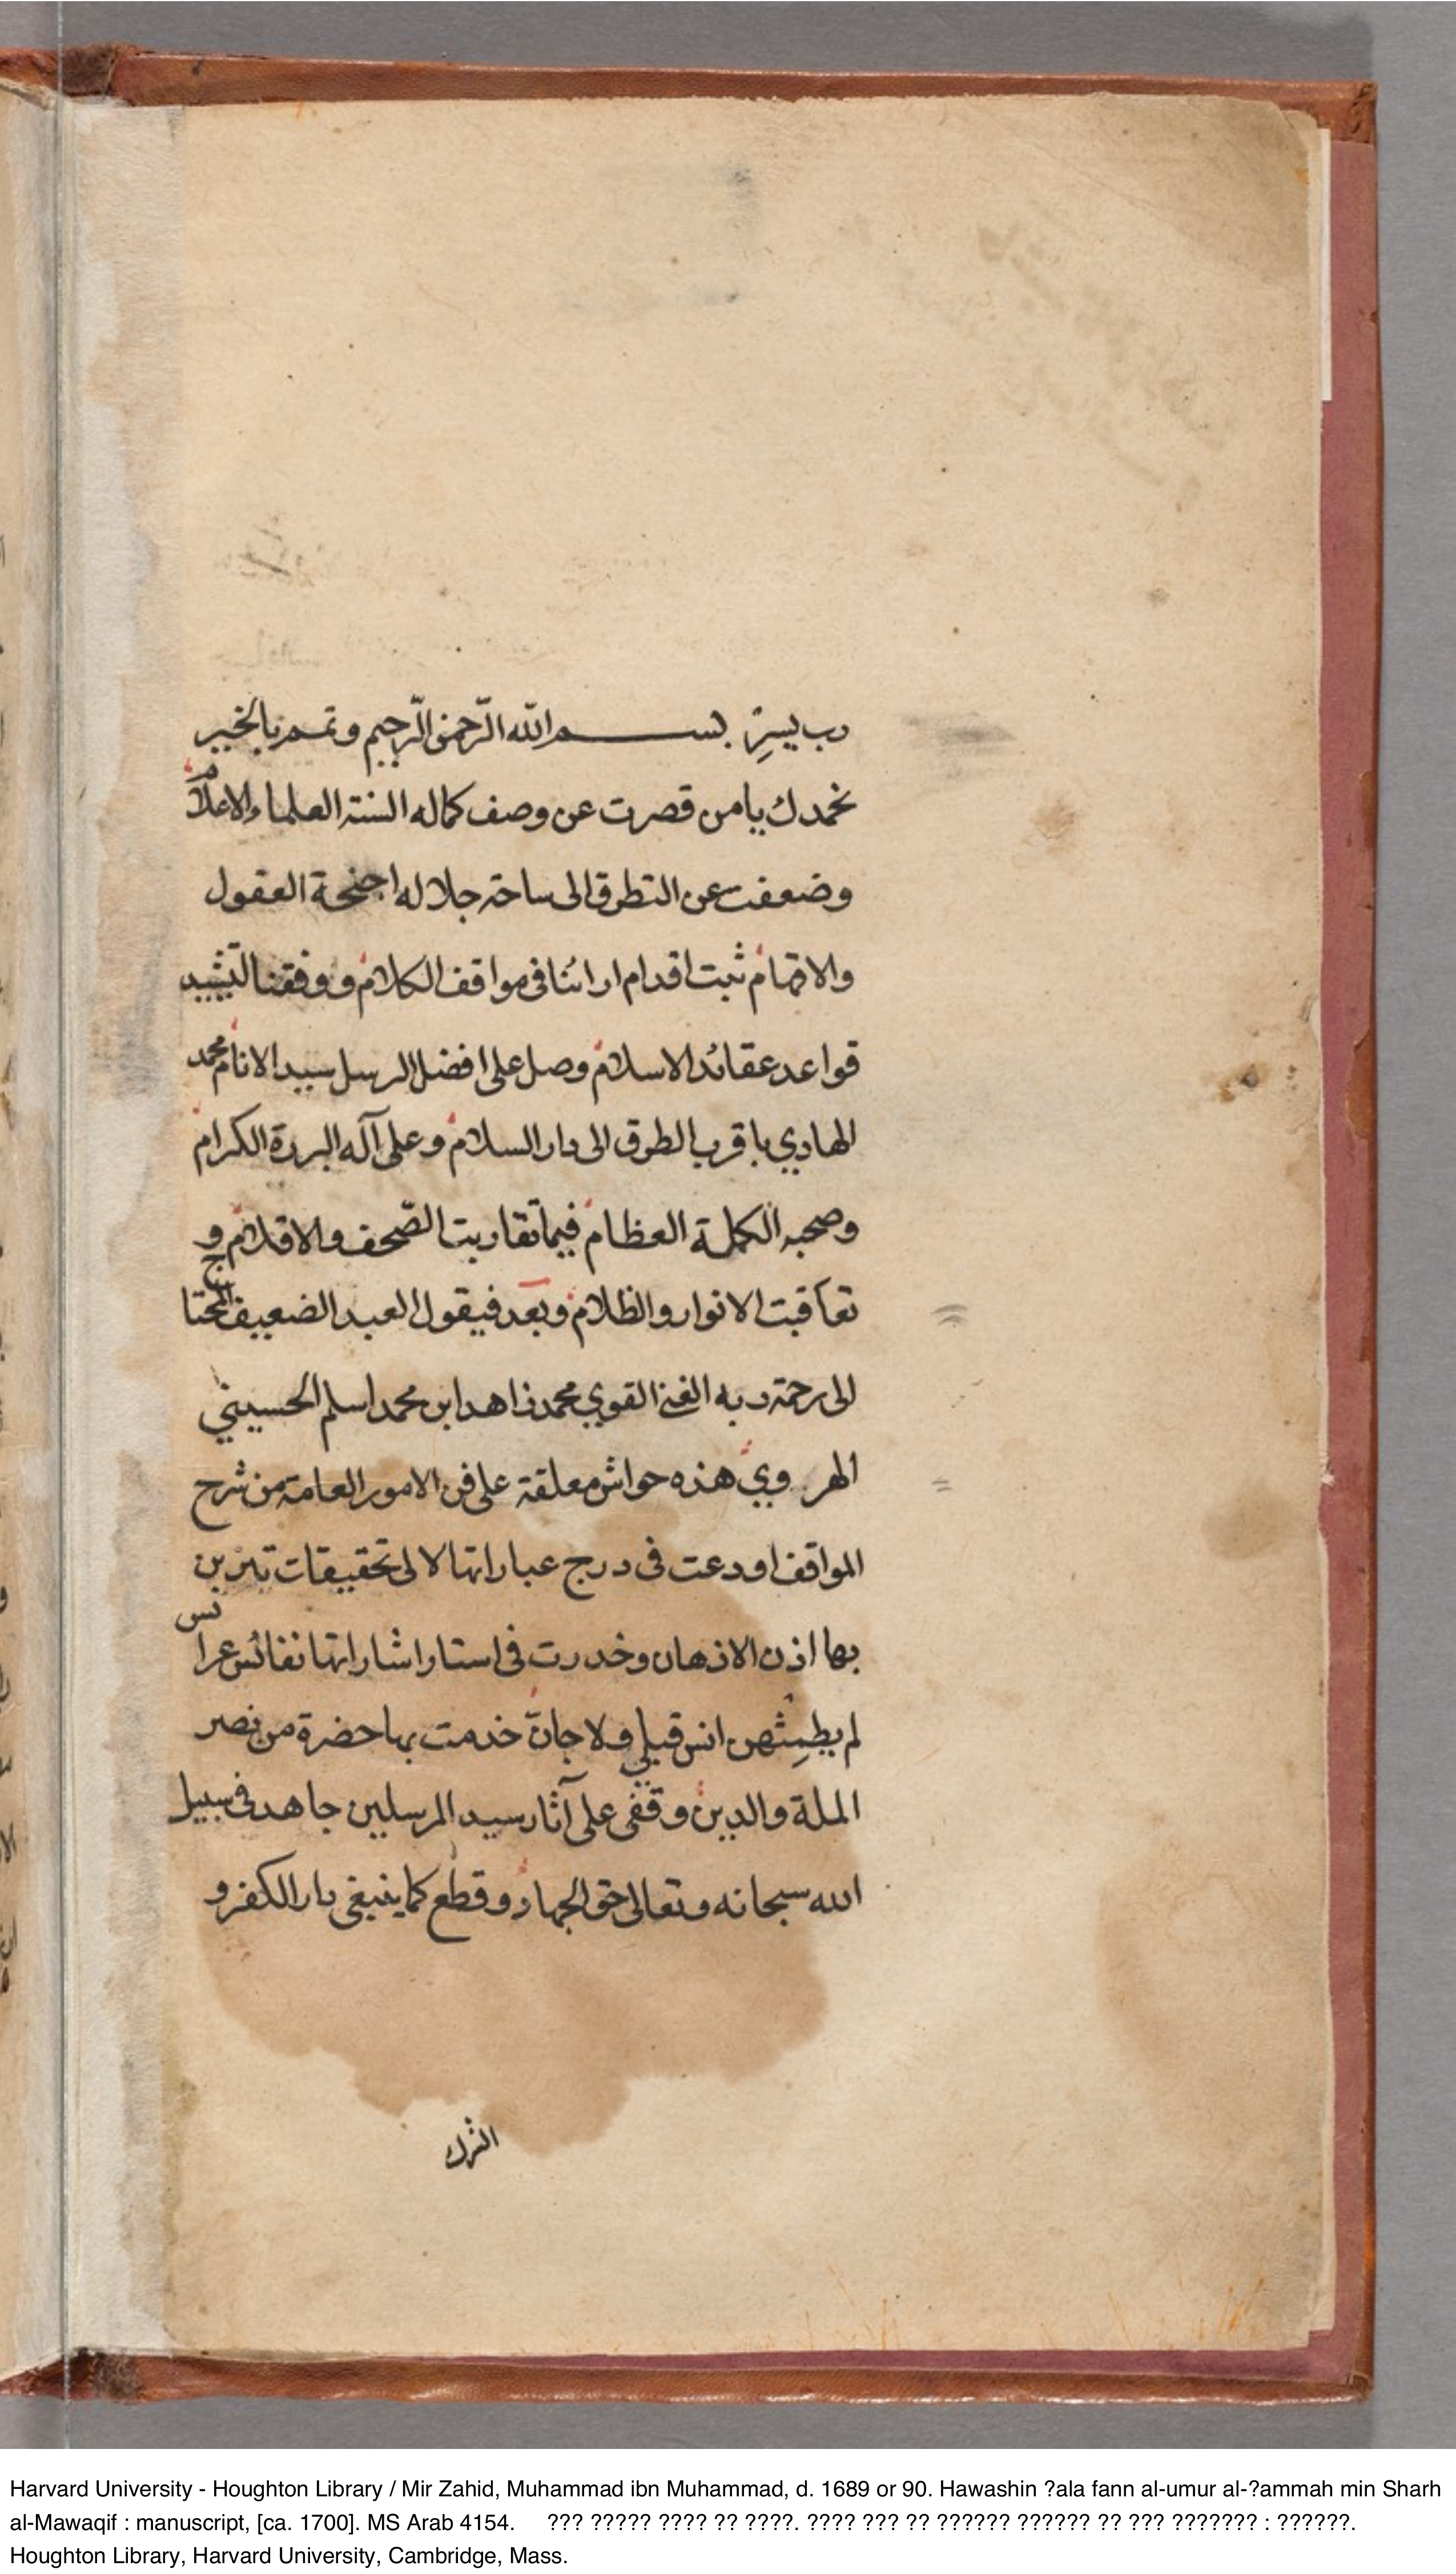 رب يسرِ بسم الله الرّحمن الرّحيم وتمم بالخير
نحمدك يا من قصرت عن وصف كماله السنة العلماء والاعلام
وضعفت عن التطرق الى ساحة جلاله اجنحة العقول
والافهام ثبت اقدام ارائنا فى مواقف الكلام ووفقنا لتشييد
قواعد عقائد الاسلام وصل على افضل الرسل سيد الانام محمد
الهادي باقرب الطرق الى دار السلام وعلى آله البررة الكرام
وصحبه الكملة العظام فيما تقاربت الصّحف والاقلام و
تعاقبت الانوار والظلام وبعد فيقول العبد الضعيف المحتاج
الى رحمة ربه الغني القوي محمد زاهد ابن محمد اسلم الحسيني
الهروي هذه حواش معلقة على فن الامور العامة من شرح
المواقف اودعت فى درج عباراتها لالى تحقيقات تتزين
بها اذن الاذهان وخدرت فى استار اشاراتها نفائس عرائس
لم يطمِثهن انس قبلي ولا جان خدمت بها حضرة من نصر
الملة والدين وقفى على آثار سيد المرسلين جاهد فى سبيل
الله سبحانه وتعالى حق الجهاد وقطع كما ينبغى دار الكفر و
الشرك
Harvard University - Houghton Library / Mir Zahid, Muhammad ibn Muhammad, d. 1689 or 90. Hawashin ?ala fann al-umur al-?ammah min Sharh
al-Mawaqif : manuscript, [ca. 1700]. MS Arab 4154. ??? ????? ???? ?? ????. ???? ??? ?? ?????? ?????? ?? ??? ??????? : ??????.
Houghton Library, Harvard University, Cambridge, Mass.